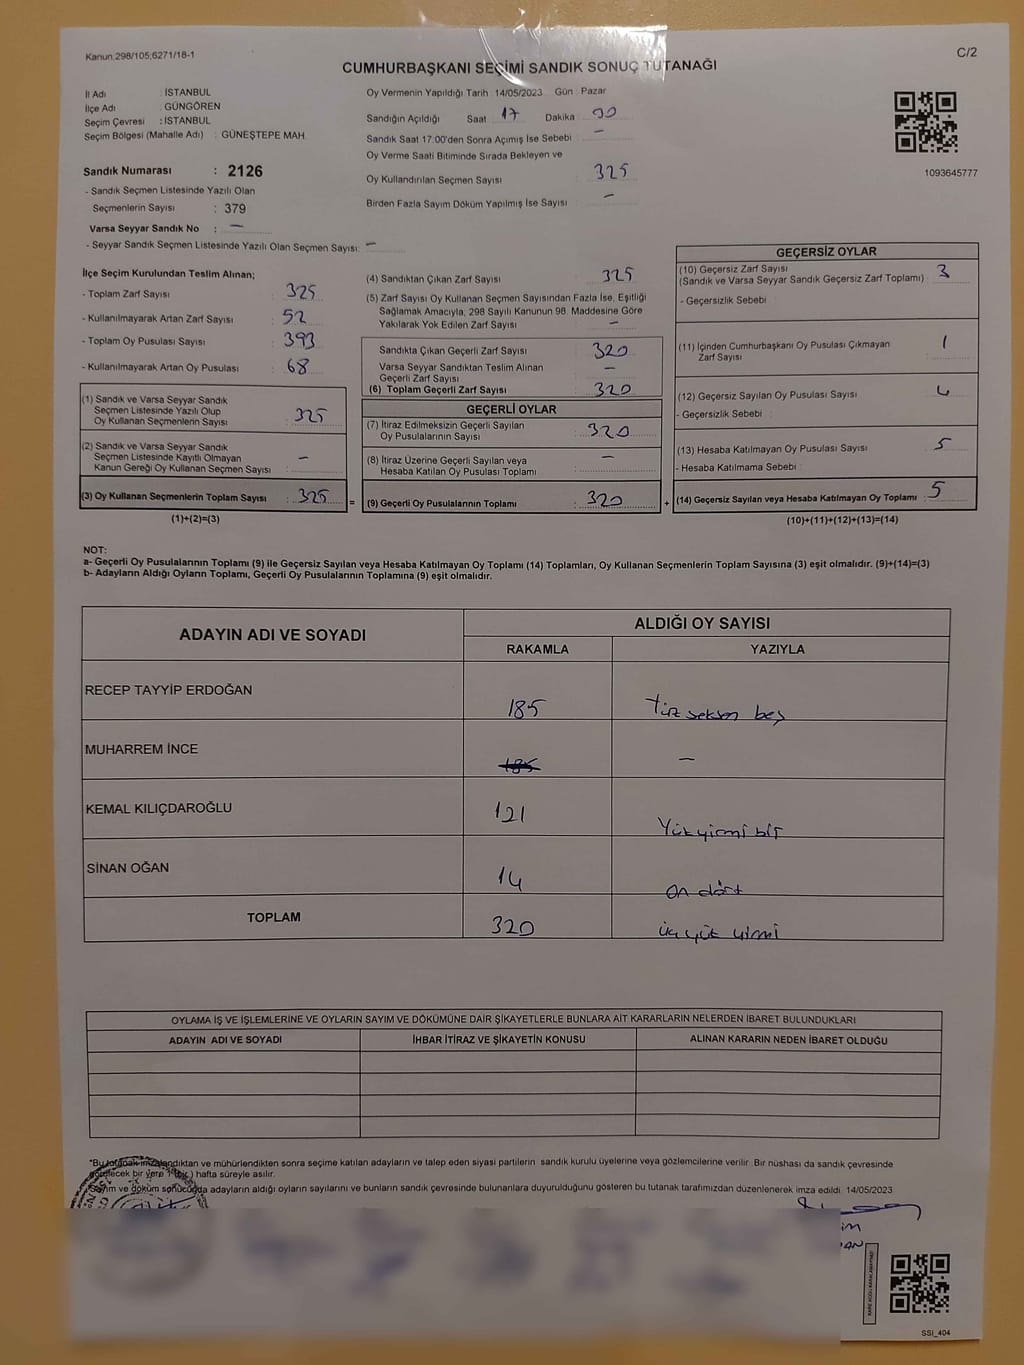 Kanun:298/105;6271/18-1
C/2
CUMHURBAŞKANI SEÇİMİ SANDIK SONUÇ TUTANAĞI
İl Adı : İSTANBUL
İlçe Adı : GÜNGÖREN
Seçim Çevresi : İSTANBUL
Seçim Bölgesi (Mahalle Adı) : GÜNEŞTEPE MAH.
Sandık Numarası : 2126
- Sandık Seçmen Listesinde Yazılı Olan
Seçmenlerin Sayısı : 379
Varsa Seyyar Sandık No : –
- Seyyar Sandık Seçmen Listesinde Yazılı Olan Seçmen Sayısı: –
Oy Vermenin Yapıldığı Tarih 14/05/2023 Gün : Pazar
Sandığın Açıldığı Saat 17 Dakika
Sandık Saat 17:00'den Sonra Açımış İse Sebebi : –
Oy Verme Saati Bitiminde Sırada Bekleyen ve
Oy Kullandırılan Seçmen Sayısı : 325
Birden Fazla Sayım Döküm Yapılmış İse Sayısı : –
1093645777
İlçe Seçim Kurulundan Teslim Alınan;
- Toplam Zarf Sayısı : 325
- Kullanılmayarak Artan Zarf Sayısı : 52
- Toplam Oy Pusulası Sayısı : 393
- Kullanılmayarak Artan Oy Pusulası : 68
(1) Sandık ve Varsa Seyyar Sandık
Seçmen Listesinde Yazılı Olup
Oy Kullanan Seçmenlerin Sayısı : 325
(2) Sandık ve Varsa Seyyar Sandık
Seçmen Listesinde Kayıtlı Olmayan
Kanun Gereği Oy Kullanan Seçmen Sayısı : –
(3) Oy Kullanan Seçmenlerin Toplam Sayısı : 325
(1)+(2)=(3)
=
(4) Sandıktan Çıkan Zarf Sayısı : 325
(5) Zarf Sayısı Oy Kullanan Seçmen Sayısından Fazla İse, Eşitliği
Sağlamak Amacıyla; 298 Sayılı Kanunun 98. Maddesine Göre
Yakılarak Yok Edilen Zarf Sayısı : –
Sandıkta Çıkan Geçerli Zarf Sayısı : 320
Varsa Seyyar Sandıktan Teslim Alınan
Geçerli Zarf Sayısı : –
(6) Toplam Geçerli Zarf Sayısı : 320
GEÇERLİ OYLAR
(7) İtiraz Edilmeksizin Geçerli Sayılan
Oy Pusulalarının Sayısı : 320
(8) İtiraz Üzerine Geçerli Sayılan veya
Hesaba Katılan Oy Pusulası Toplamı : –
(9) Geçerli Oy Pusulalarının Toplamı : 320
+
GEÇERSİZ OYLAR
(10) Geçersiz Zarf Sayısı
(Sandık ve Varsa Seyyar Sandık Geçersiz Zarf Toplamı) : 3
- Geçersizlik Sebebi :
(11) İçinden Cumhurbaşkanı Oy Pusulası Çıkmayan
Zarf Sayısı : 1
(12) Geçersiz Sayılan Oy Pusulası Sayısı : 4
- Geçersizlik Sebebi :
(13) Hesaba Katılmayan Oy Pusulası Sayısı : 5
- Hesaba Katılmama Sebebi :
(14) Geçersiz Sayılan veya Hesaba Katılmayan Oy Toplamı : 5
(10)+(11)+(12)+(13)=(14)
NOT:
a- Geçerli Oy Pusulalarının Toplamı (9) ile Geçersiz Sayılan veya Hesaba Katılmayan Oy Toplamı (14) Toplamları, Oy Kullanan Seçmenlerin Toplam Sayısına (3) eşit olmalıdır. (9)+(14)=(3)
b- Adayların Aldığı Oyların Toplamı, Geçerli Oy Pusulalarının Toplamına (9) eşit olmalıdır.
ADAYIN ADI VE SOYADI
ALDIĞI OY SAYISI
RAKAMLA YAZIYLA
RECEP TAYYİP ERDOĞAN 185 Yüz seksen beş
MUHARREM İNCE 185 –
KEMAL KILIÇDAROĞLU 121 Yüz yirmi bir
SİNAN OĞAN 14 on dört
TOPLAM 320 üç yüz yirmi
OYLAMA İŞ VE İŞLEMLERİNE VE OYLARIN SAYIM VE DÖKÜMÜNE DAİR ŞİKAYETLERLE BUNLARA AİT KARARLARIN NELERDEN İBARET BULUNDUKLARI
ADAYIN ADI VE SOYADI İHBAR İTİRAZ VE ŞİKAYETİN KONUSU ALINAN KARARIN NEDEN İBARET OLDUĞU
"Bu tutanak imzalandıktan ve mühürlendikten sonra seçime katılan adayların ve talep eden siyasi partilerin sandık kurulu üyelerine veya gözlemcilerine verilir. Bir nüshası da sandık çevresinde
görülecek bir yere 1 (bir) hafta süreyle asılır.
Sayım ve döküm sonucunda adayların aldığı oyların sayılarını ve bunların sandık çevresinde bulunanlara duyurulduğunu gösteren bu tutanak tarafımızdan düzenlenerek imza edildi. 14/05/2023
SSI_404